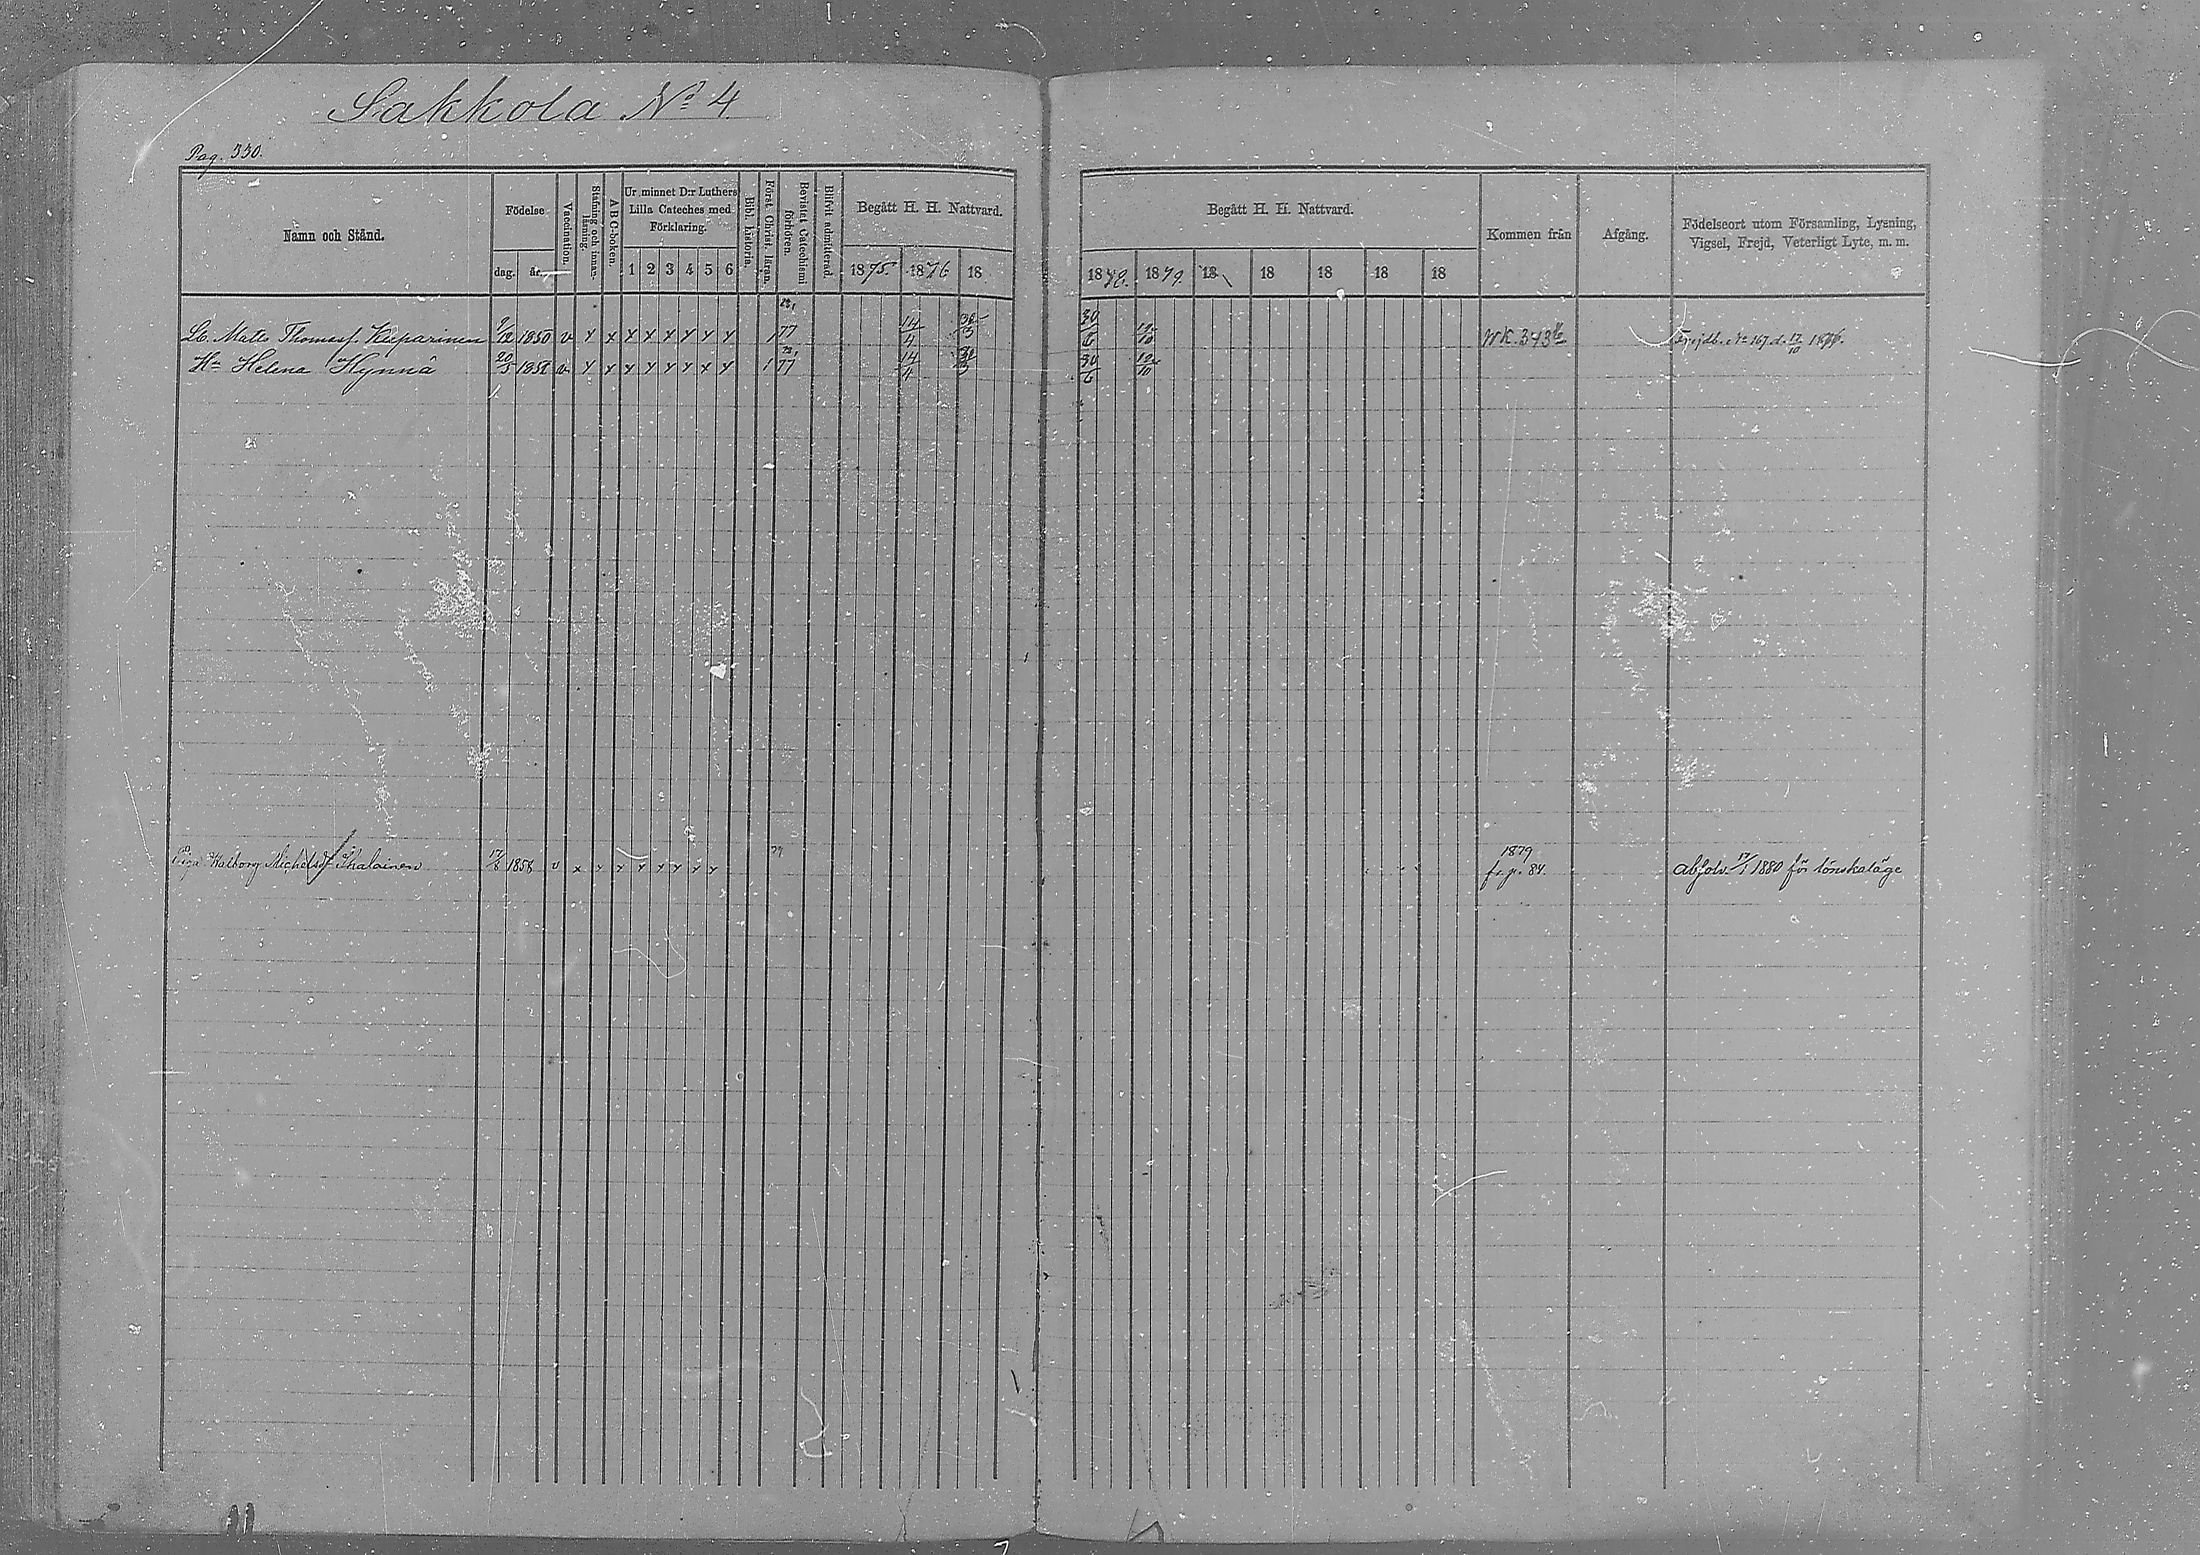 Sakkola No 4
Pag. 330.
Namn och Stånd.
Födelse
dag. år.
Vaccination.
Stafning och innan-läsning.
A B C-boken.
Ur minnet D:r Luthers Lilla Cateches med Förklaring.
1 2 3 4 5 6
Bibl. historia.
Först. Christ. läran.
Bevistat Catechismi förhören.
Blifvit admitterad.
Begått H. H. Nattvard.
1875. 1876 18
Begått H. H. Nattvard.
1878. 1879. 18 18 18 18 18
Kommen från
Afgång.
Födelseort utom Församling, Lysning, Vigsel, Frejd, Veterligt Lyte, m. m.
Lb. Matts Thomasf. Kuparinen 9/12 1850 v x x x x x x x x 1 77 14/4 30/3 30/6 12/10 WK. 343 1/2 Frejdb. No 167 d. 17/10 1876.
Hu Helena Hynnä 20/5 1858 v x x x x x x x x 1 77 14/4 30/3 30/6 12/10
Piga Walborg Michelsdr Ihalainen 17/8 1858 v x x x x x x x x 79 1879
fr. p. 84. absolv. 17/1 1880 för lönskaläge